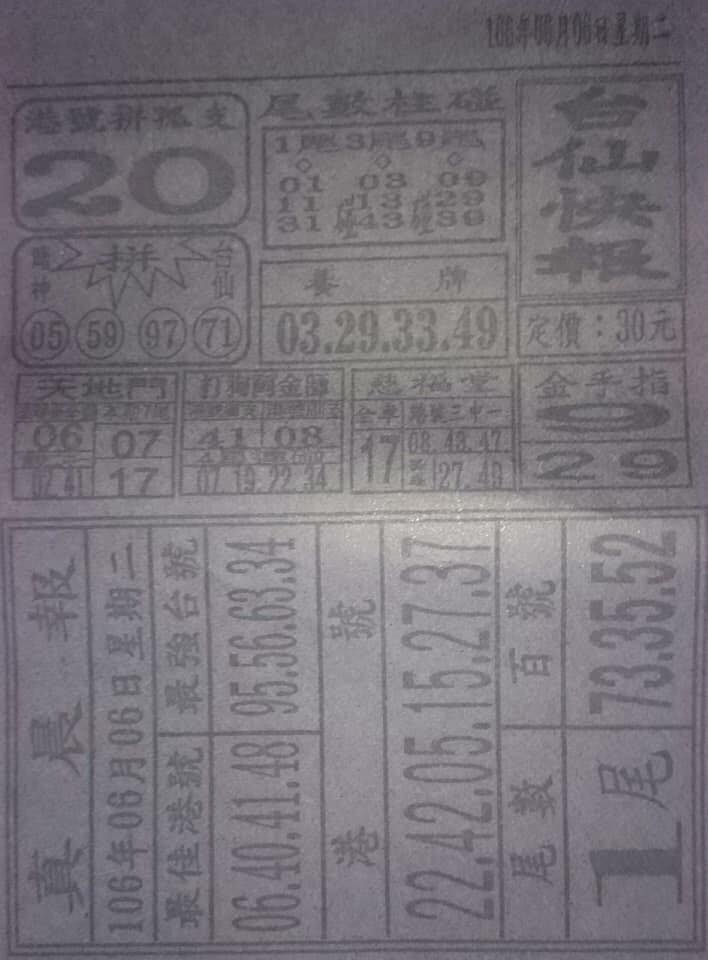 106年06月06日星期二
台仙快報
定價：30元
港號拼孤支
20
尾數柱碰
1尾3尾9尾
01 03 09
11 13 29
31 43 39
碰 碰
龍神 拼 台仙
05 59 97 71
養牌
03.29.33.49
天地門
06 07
02.41 17
打狗阿金師
41 08
07.19.22.34
慈福堂
全車 港號三中一
17 08.43.47
27.49
金手指
0
2 9
真晨報
106年06月06日星期二
最佳港號 最強台號
06.40.41.48 95.56.63.34
港號
22.42.05.15.27.37
尾數 百號
1尾 73.35.52